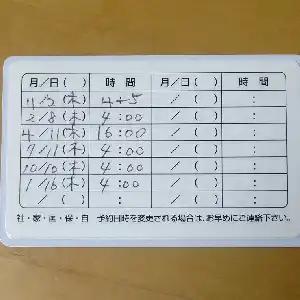 月／日（ ） 時間 月／日（ ） 時間
（木） 4 5 ／（ ） ：
2／8（木） 4：00 ／（ ） ：
4／11（木） 16：00 ／（ ） ：
7／11（木） 4：00 ／（ ） ：
10／10（木） 4：00 ／（ ） ：
1／16（木） 4：00 ／（ ） ：
／（ ） ： ／（ ） ：
社・家・国・保・自 予約日時を変更される場合は、お早めにご連絡下さい。